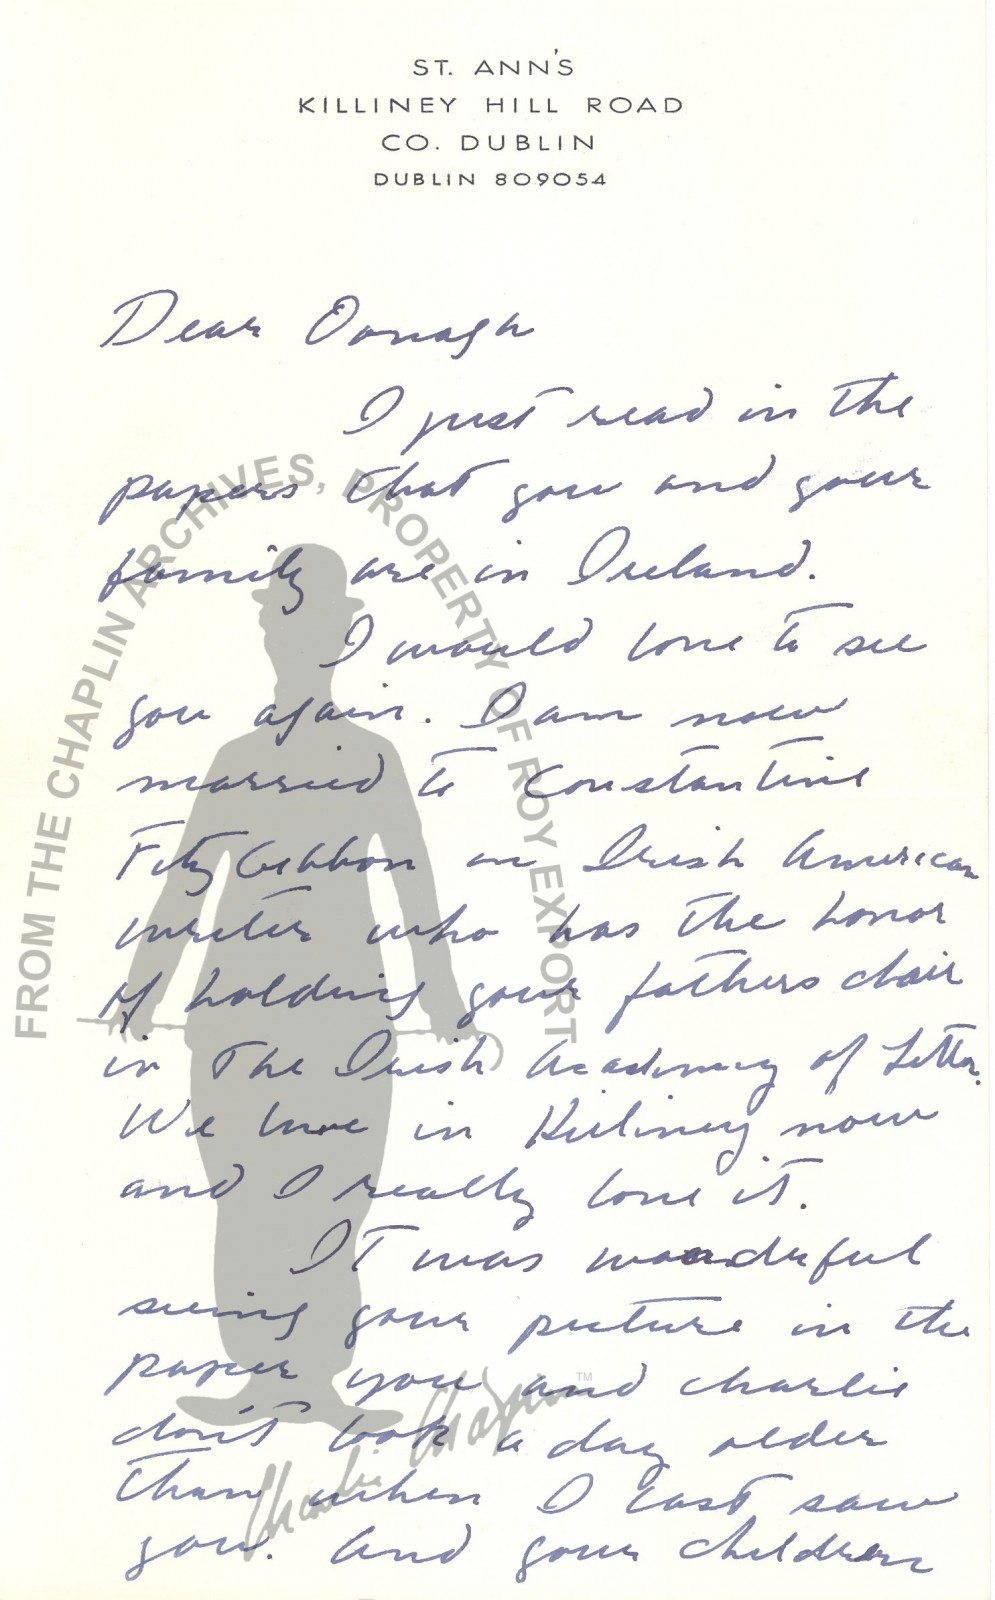 ST. ANN'S
KILLINEY HILL ROAD
CO. DUBLIN
DUBLIN 809054
Dear Oonagh
I just read in the
papers that you and your
family are in Ireland.
I would love to see
you again. I am now
married to Constantine
FitzGibbon an Irish American
writer who has the honor
of holding your fathers chair
in the Irish Academy of Letters.
We live in Killiney now
and I really love it.
It was wonderful
seeing your picture in the
paper you and Charlie
don't look a day older
than when I last saw
you. And your children
FROM THE CHAPLIN ARCHIVES, PROPERTY OF ROY EXPORT
Charlie Chaplin TM